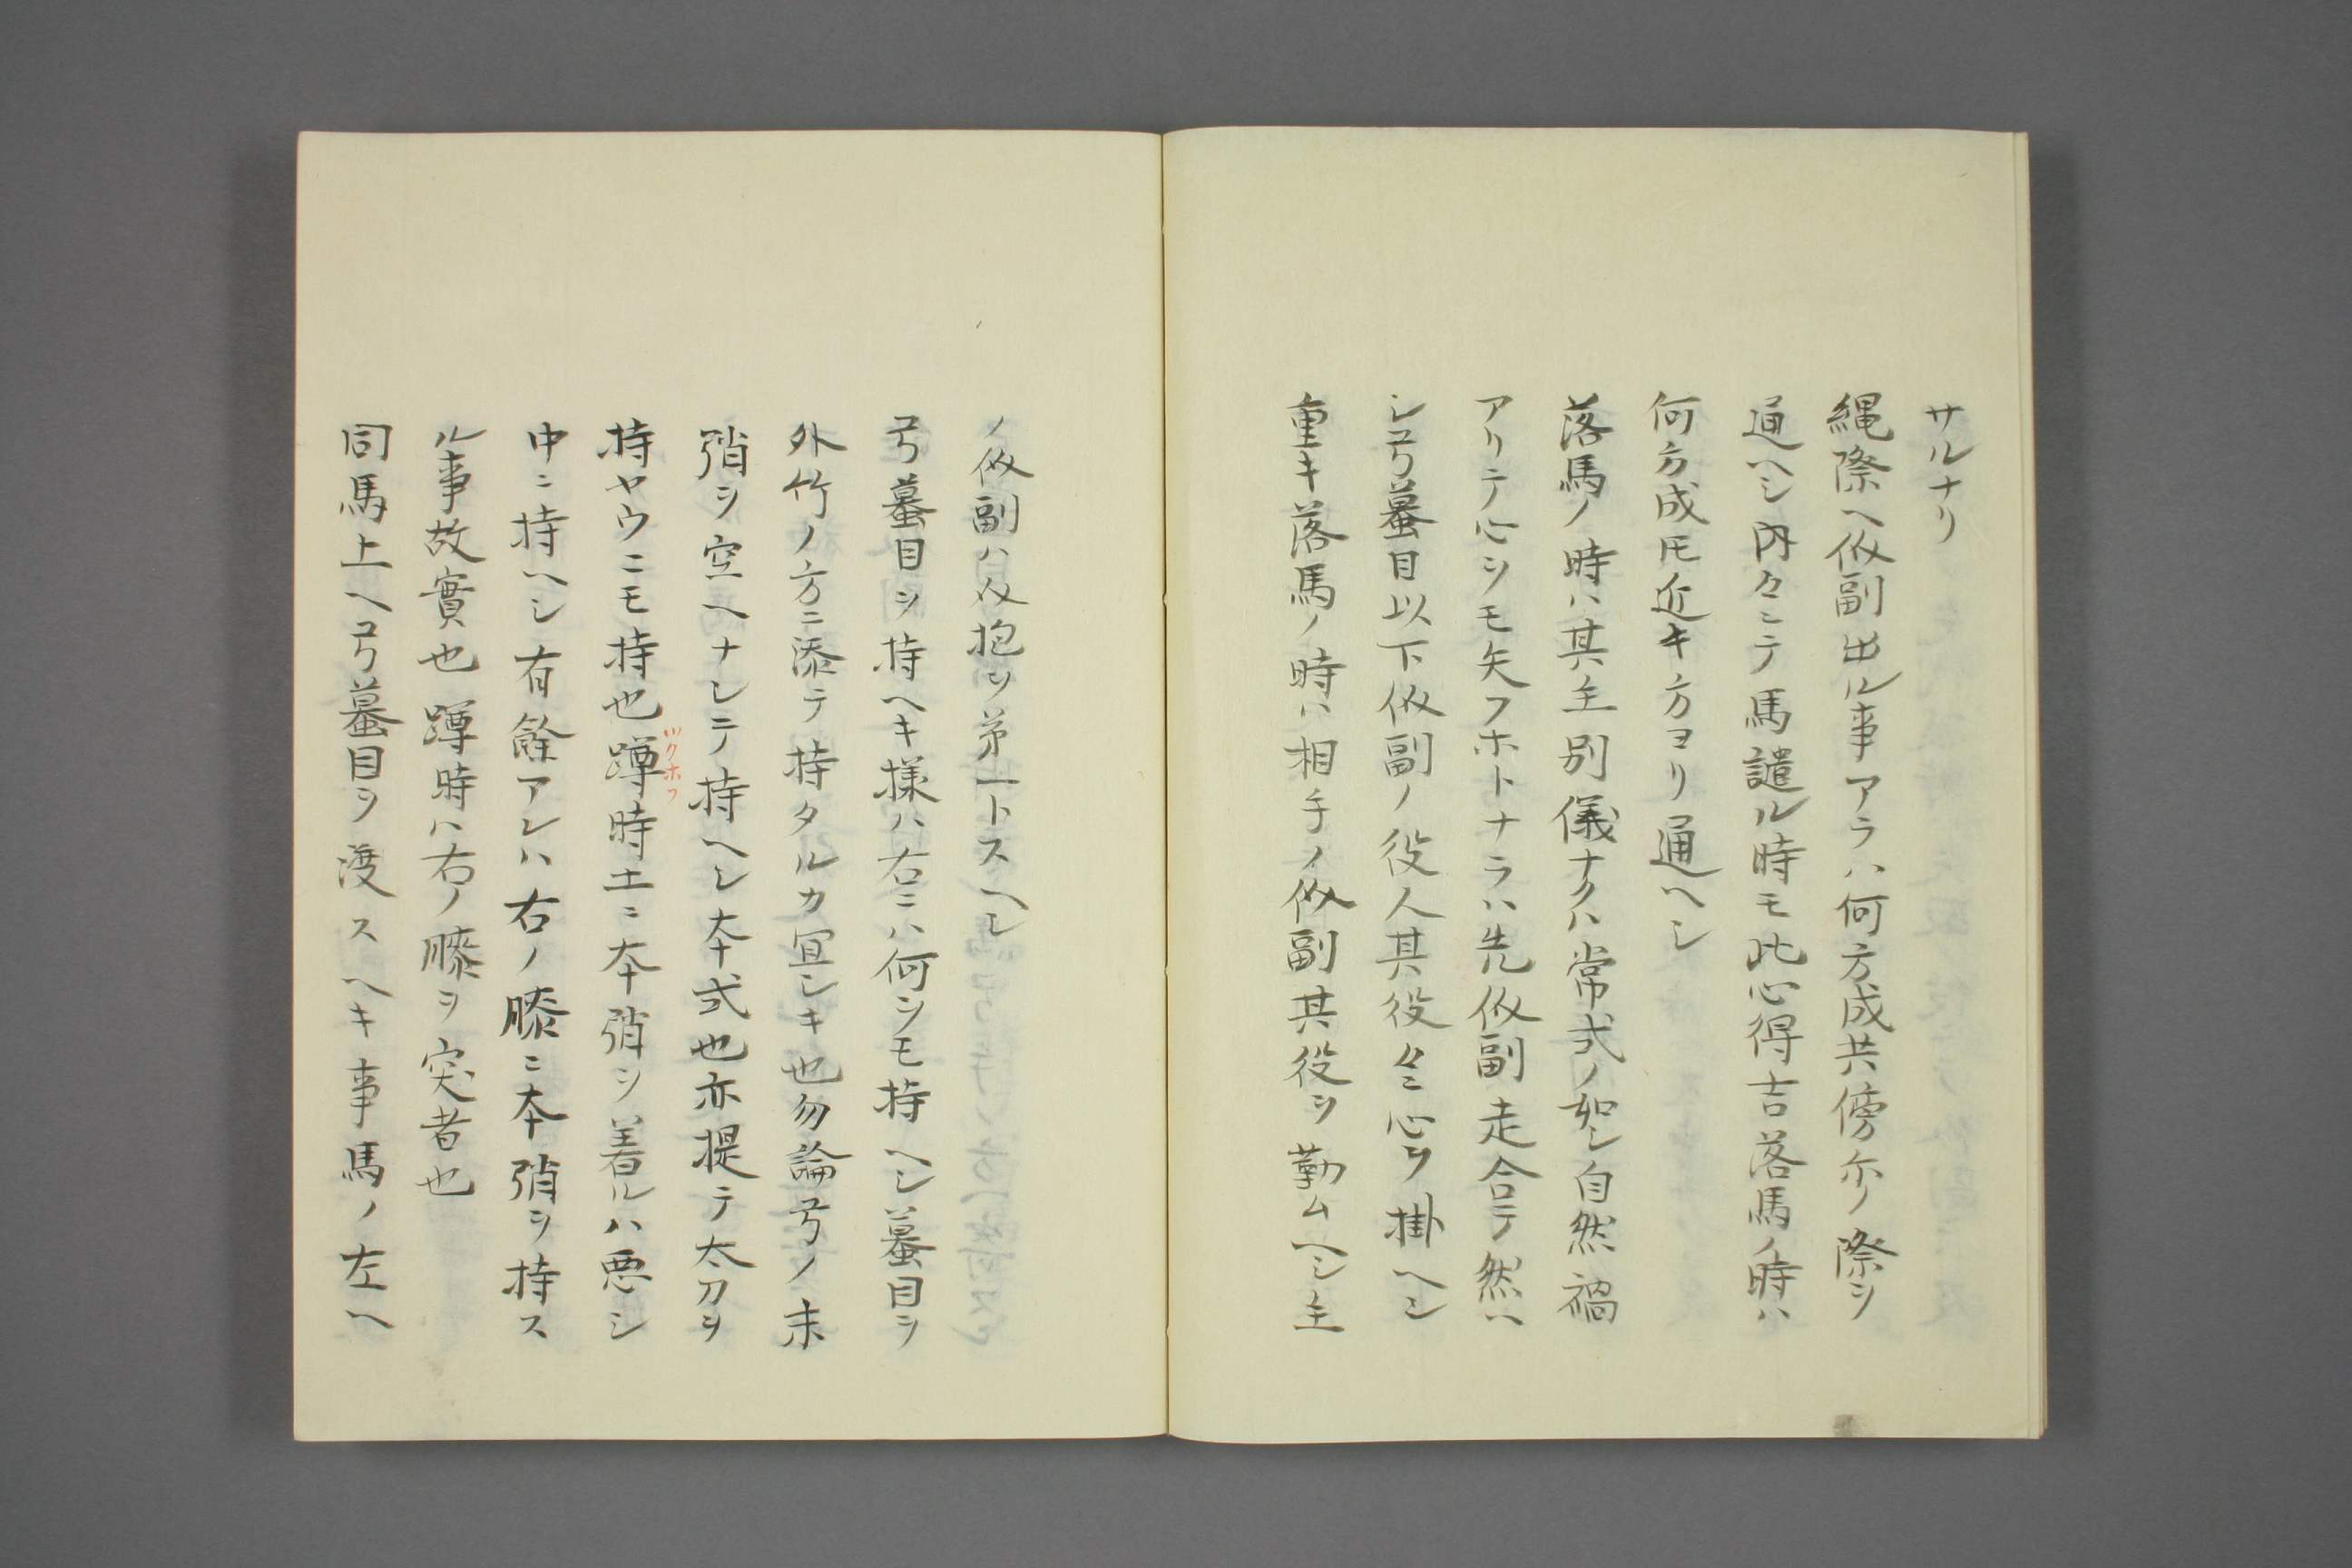 サルナリ
縄際ヘ仮副出ル事アラハ何方成共傍尓ノ際ヲ
通ヘシ内々ニテ馬譴ル時モ此心得吉落馬ノ時ハ
何方成𪜈近キ方ヨリ通ヘシ
落馬ノ時ハ其主別儀ナクハ常式ノ如シ自然禍
アリテ心ヲモ矢フホトナラハ先仮副走合テ然ハ
シ弓蟇目以下仮副ノ役人其役々ニ心ヲ掛ヘシ
重キ落馬ノ時ハ相手ノ仮副其役ヲ勤ムヘシ主
ノ仮副ハ人抱ヲ第一トスヘシ
弓蟇目ヲ持ヘキ様ハ右ニハ何ンモ持ヘシ蟇目ヲ
外竹ノ方ニ添テ持タルカ冝シキ也勿論弓ノ末
弰ヲ空ヘナシテ持ヘシ本式也亦提テ太刀ヲ
持ヤウニモ持也蹲時土ニ本弰ヲ着ルハ悪シ
ツクホフ
中ニ持ヘシ有餘アレハ右ノ膝ニ本弰ヲ持ス
ル事故實也蹲時ハ右ノ膝ヲ突者也
同馬上ヘ弓蟇目ヲ渡スヘキ事馬ノ左ヘ